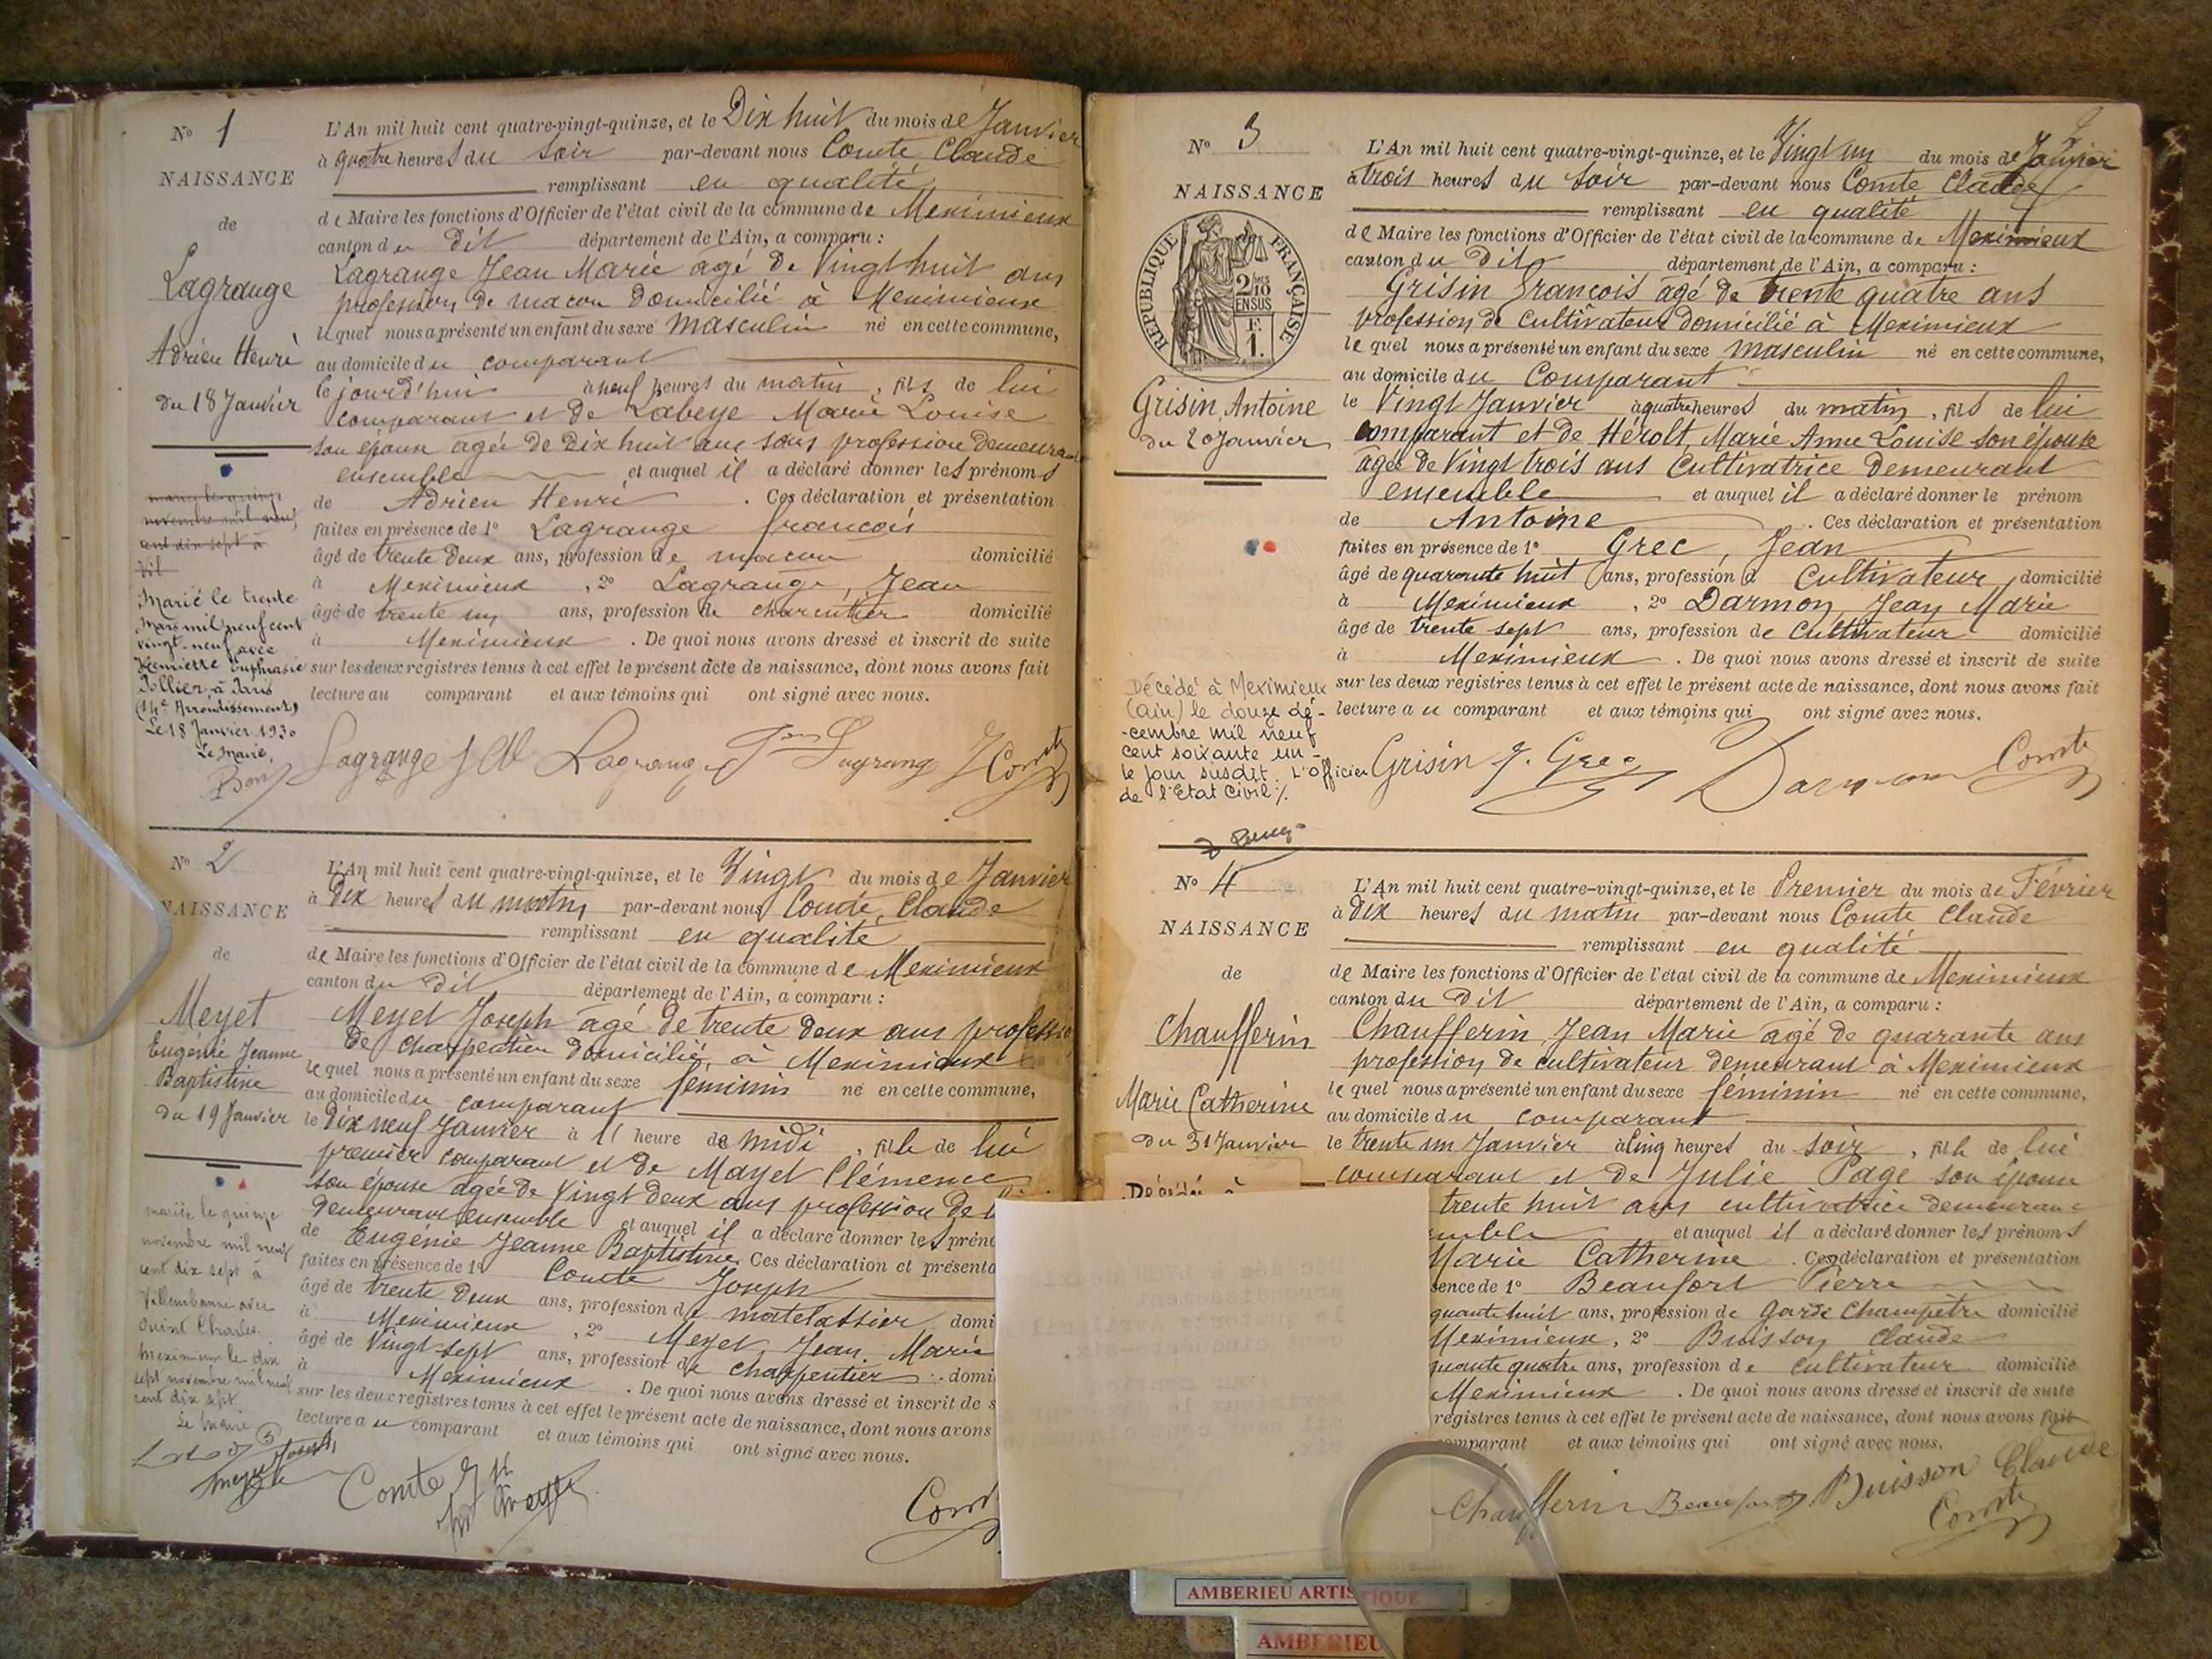 No 1
NAISSANCE
de
Lagrange
Adrien Henri
du 18 Janvier
L'An mil huit cent quatre-vingt-quinze, et le Dix huit du mois de Janvier
à quatre heures du soir par-devant nous Comte Claude
remplissant en qualité
de Maire les fonctions d'Officier de l'état civil de la commune de Meximieux
canton du dit département de l'Ain, a comparu :
Lagrange Jean Marie agé de Vingt huit ans
profession de macon domicilié à Meximieux
lequel nous a présenté un enfant du sexe masculin né en cette commune,
au domicile du comparant
le jourd'hui à neuf heures du matin, fils de lui
comparant et de Labeye Marie Louise
son épouse agée de Dix huit ans sans profession demeurant
ensemble et auquel il a déclaré donner les prénoms
de Adrien Henri. Ces déclaration et présentation
faites en présence de 1° Lagrange francois
âgé de trente deux ans, profession de macon domicilié
à Meximieux, 2° Lagrange, Jean
âgé de trente un ans, profession de charcutier domicilié
à Meximieux. De quoi nous avons dressé et inscrit de suite
sur les deux registres tenus à cet effet le présent acte de naissance, dont nous avons fait
lecture au comparant et aux témoins qui ont signé avec nous.
mariée le quinze
novembre mil neuf
cent dix sept à
Vil
Marié le trente
Mars mil neuf cent
vingt-neuf avec
Euphrasie
Tollier, à Paris
(14e Arrondissement)
Le 18 Janvier 1930
Le Maire,
Lagrange J M Lagrange Jean Lagrange Comte
No 2
NAISSANCE
de
Meyet
Eugénie Jeanne
Baptistine
du 19 Janvier
L'An mil huit cent quatre-vingt-quinze, et le Vingt du mois de Janvier
à Dix heures du matin par-devant nous Comte, Claude
remplissant en qualité
de Maire les fonctions d'Officier de l'état civil de la commune de Meximieux
canton du dit département de l'Ain, a comparu :
Meyet Joseph agé de trente deux ans professio
de charpentier domicilié à Meximieux
lequel nous a présenté un enfant du sexe féminin né en cette commune,
au domicile du comparant
le Dix neuf Janvier à 11 heure de midi, fille de lui
premier comparant et de Mayet Clémence
son épouse agée de Vingt deux ans profession de
demeurant ensemble et auquel il a déclaré donner les préno
de Eugénie Jeanne Baptistine. Ces déclaration et présenta
faites en présence de 1° Comte Joseph
âgé de trente deux ans, profession de matelassier domi
à Meximieux, 2° Meyet, Jean, Marie
âgé de Vingt-sept ans, profession de charpentier domi
à Meximieux. De quoi nous avons dressé et inscrit de s
sur les deux registres tenus à cet effet le présent acte de naissance, dont nous avons
lecture au comparant et aux témoins qui ont signé avec nous.
mariée le quinze
novembre mil neuf
cent dix sept à
Villeurbanne avec
Charles.
Meximieux le dix
sept novembre mil neuf
cent dix sept
Le Maire
Comte Meyet Comte
No 3
NAISSANCE
REPUBLIQUE FRANÇAISE
2/10
EN SUS
F.
1.
Grisin Antoine
du 20 Janvier
2
L'An mil huit cent quatre-vingt-quinze, et le Vingt un du mois de Janvier
à trois heures du soir par-devant nous Comte Claude
remplissant en qualité
de Maire les fonctions d'Officier de l'état civil de la commune de Meximieux
canton du dit département de l'Ain, a comparu :
Grisin francois agé de trente quatre ans
profession de cultivateur domicilié à Meximieux
lequel nous a présenté un enfant du sexe masculin né en cette commune,
au domicile du Comparant
le Vingt Janvier à quatre heures du matin, fils de lui
comparant et de Hérolt Marie Anne Louise son épouse
agée de Vingt trois ans cultivatrice demeurant
ensemble et auquel il a déclaré donner le prénom
de Antoine. Ces déclaration et présentation
faites en présence de 1° Grec, Jean
âgé de quarante huit ans, profession d Cultivateur domicilié
à Meximieux, 2° Darmon, Jean Marie
âgé de trente sept ans, profession de Cultivateur domicilié
à Meximieux. De quoi nous avons dressé et inscrit de suite
sur les deux registres tenus à cet effet le présent acte de naissance, dont nous avons fait
lecture au comparant et aux témoins qui ont signé avec nous.
Décédé à Meximieux
(Ain) le douze dé-
-cembre mil neuf
cent soixante un -
le jour susdit. L'officier
de l'Etat civil %.
Grisin J. Grec Darmon Comte
No 4
NAISSANCE
de
Chaufferin
Marie Catherine
du 31 Janvier
Décédée à
L'An mil huit cent quatre-vingt-quinze, et le Premier du mois de Février
à dix heures du matin par-devant nous Comte Claude
remplissant en qualité
de Maire les fonctions d'Officier de l'état civil de la commune de Meximieux
canton du dit département de l'Ain, a comparu :
Chaufferin, Jean Marie agé de quarante ans
profession de cultivateur demeurant à Meximieux
lequel nous a présenté un enfant du sexe féminin né en cette commune,
au domicile du comparant
le trente un Janvier à cinq heures du soir, fille de lui
comparant et de Julie Page son épouse
trente huit ans cultivatrice demeurant
emble et auquel il a déclaré donner les prénoms
Marie Catherine. Ces déclaration et présentation
sence de 1° Beaufort Pierre
quante huit ans, profession de garde champêtre domicilié
Meximieux, 2° Buisson Claude
quante quatre ans, profession de cultivateur domicilié
Meximieux. De quoi nous avons dressé et inscrit de suite
registres tenus à cet effet le présent acte de naissance, dont nous avons fait
comparant et aux témoins qui ont signé avec nous.
Chaufferin Beaufort Buisson Claude
Comte
AMBERIEU ARTISTIQUE
AMBERIEU